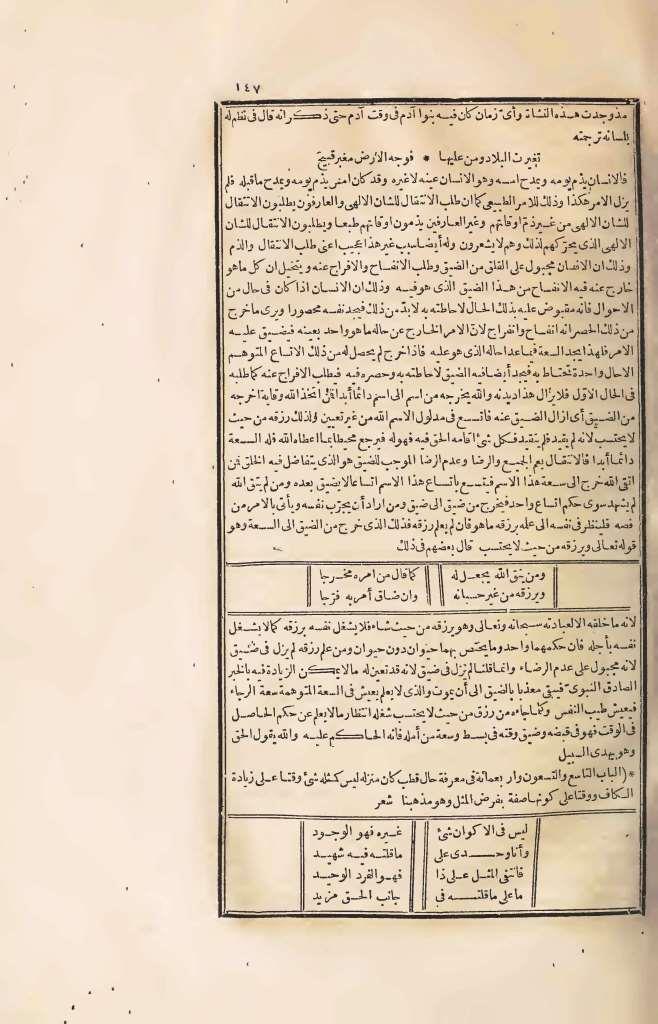 ١٤٧
مذ وجدت هذه النشأة وأى زمان كان فيه بنوا آدم فى وقت آدم حتى ذكر انه قال فى نظم له
بلسانه ترجمته
تغيرت البلاد ومن عليها * فوجه الارض مغبر قبيح
فالانسان يذم يومه ويمدح امسه وهو الانسان عينه لا غيره وقد كان امس يذم يومه ويمدح ما قبله فلم
يزل الامر هكذا وذلك للامر الطبيعى كما ان طلب الانتقال للشان الالهى والعارفون يطلبون الانتقال
للشان الالهى من غير ذم اوقاتهم وغير العارفين يذمون اوقاتهم طبعا ويطلبون الانتقال للشان
الالهى الذى يحركهم لذلك وهم لا يشعرون وله أيضا سبب غير هذا عجيب اعنى طلب الانتقال والذم
وذلك ان الانسان مجبول على القلق من الضيق وطلب الانفساح والافراج عنه ويتخيل ان كل ما هو
خارج عنه فيه الانفساح من هذا الضيق الذى هو فيه وذلك ان الانسان اذا كان فى حال من
الاحوال فانه مقبوض عليه بذلك الحال لاحاطته به لابد من ذلك فيجد نفسه محصورا ويرى ما خرج
من ذلك الحصر انه انفساح وانفراج لان الامر الخارج عن حاله ما هو واحد بعينه فيضيق عليه
الامر فلهذا يجد السعة فيما عدا حاله الذى هو عليه فاذا خرج لم يحصل له من ذلك الاتساع المتوهم
الا حال واحدة تحتاط به فيجد أيضا فيه الضيق لاحاطته به وحصره فيه فيطلب الافراج عنه كما طلبه
فى الحال الاول فلا يزال هذا ديدنه والله يخرجه من اسم الى اسم دائما أبدا فمن اتخذ الله وقاية اخرجه
من الضيق أى ازال الضيق عنه فاتسع فى مدلول الاسم الله من غير تعيين ولذلك رزقه من حيث
لا يحتسب لانه لم يقيد فلم يتقيد فكل شئ اقامه الحق فيه فهو له فيرجع محيطا بما اعطاه الله فله السعة
دائما أبدا فالانتقال يعم الجميع والرضا وعدم الرضا الموجب للضيق هو الذى يتفاضل فيه الخلق فمن
اتقى الله خرج الى سعة هذا الاسم فيتسع باتساع هذا الاسم اتساعا لا ضيق بعده ومن لم يتق الله
لم يشهد سوى حكم اتساع واحد فيخرج من ضيق الى ضيق ومن اراد أن يجرب نفسه ويأتى بالامر من
فصه فلينظر فى نفسه الى علمه برزقه ما هو فان لم يعلم رزقه فذلك الذى خرج من الضيق الى السعة وهو
قوله تعالى ويرزقه من حيث لا يحتسب قال بعضهم فى ذلك
ومن يتق الله يجعل له كما قال من امره مخرجا
ويرزقه من غير حسبانه وان ضاق أمر به فرجا
لانه ما خلقه الا لعبادته سبحانه وتعالى وهو يرزقه من حيث شاء فلا يشغل نفسه برزقه كما لا يشغل
نفسه بأجله فان حكمهما واحد وما يختص بهما حيوان دون حيوان ومن علم رزقه لم يزل فى ضيق
لانه مجبول على عدم الرضاء وانما قلنا لم يزل فى ضيق لانه قد تعين له ما لا يمكن الزيادة فيه بالخبر
الصادق النبوى فيبقى معذبا بالضيق الى أن يموت والذى لا يعلم يعيش فى السعة المتوهمة سعة الرجاء
فيعيش طيب النفس وكلما جاءه من رزق من حيث لا يحتسب شغله انتظار ما لا يعلم عن حكم الحاصل
فى الوقت فهو فى قبضه وضيق وقته فى بسط وسعة من أمله فانه الحاكم عليه والله يقول الحق
وهو يهدى السبيل
* (الباب التاسع والتسعون واربعمائة فى معرفة حال قطب كان منزله ليس كمثله شئ وقتا على زيادة
الكاف ووقتا على كونها صفة بفرض المثل وهو مذهبنا شعر
ليس فى الاكوان شئ غيره فهو الوجود
وأنا وحدى على ما قلته فيه شهيد
فانتفى المثل على ذا فهو الفرد الوحيد
ما على ما قلته فى جانب الحق مزيد